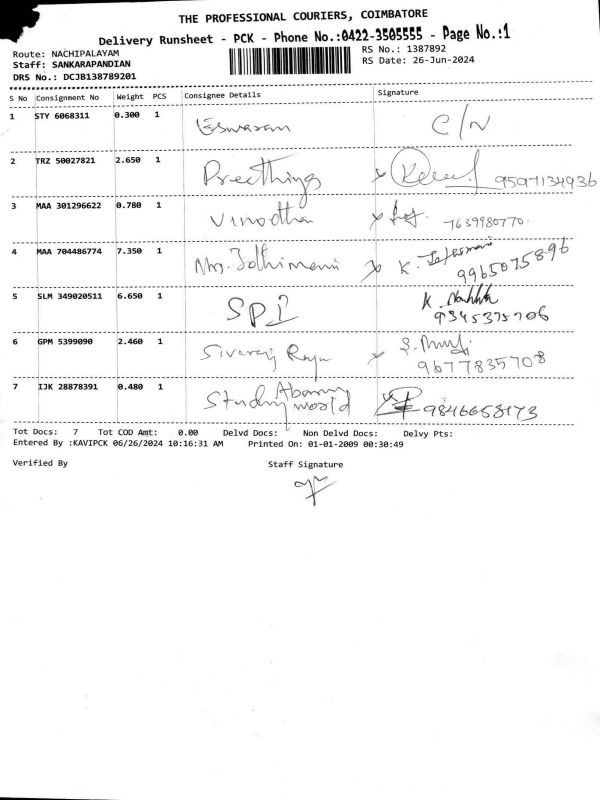 THE PROFESSIONAL COURIERS, COIMBATORE
Delivery Runsheet - PCK - Phone No.:0422-3505555 - Page No.:1
Route: NACHIPALAYAM
RS No.: 1387892
Staff: SANKARAPANDIAN
RS Date: 26-Jun-2024
DRS No.: DCJB138789201
S No Consignment No Weight PCS Consignee Details Signature
1 STY 6068311 0.300 1 Eswaran C/N
2 TRZ 50027821 2.650 1 Preethings 9597134936
3 MAA 301296622 0.780 1 Vinodha 7639980770
4 MAA 704486774 7.350 1 Mrs. Jothimani K. 9965075896
5 SLM 349020511 6.650 1 SPI K. 9345375706
6 GPM 5399090 2.460 1 Sivaraj Raju 9677835708
7 IJK 28878391 0.480 1 Study world 9846658173
Tot Docs: 7 Tot COD Amt: 0.00 Delvd Docs: Non Delvd Docs: Delvy Pts:
Entered By :KAVIPCK 06/26/2024 10:16:31 AM Printed On: 01-01-2009 00:30:49
Verified By Staff Signature